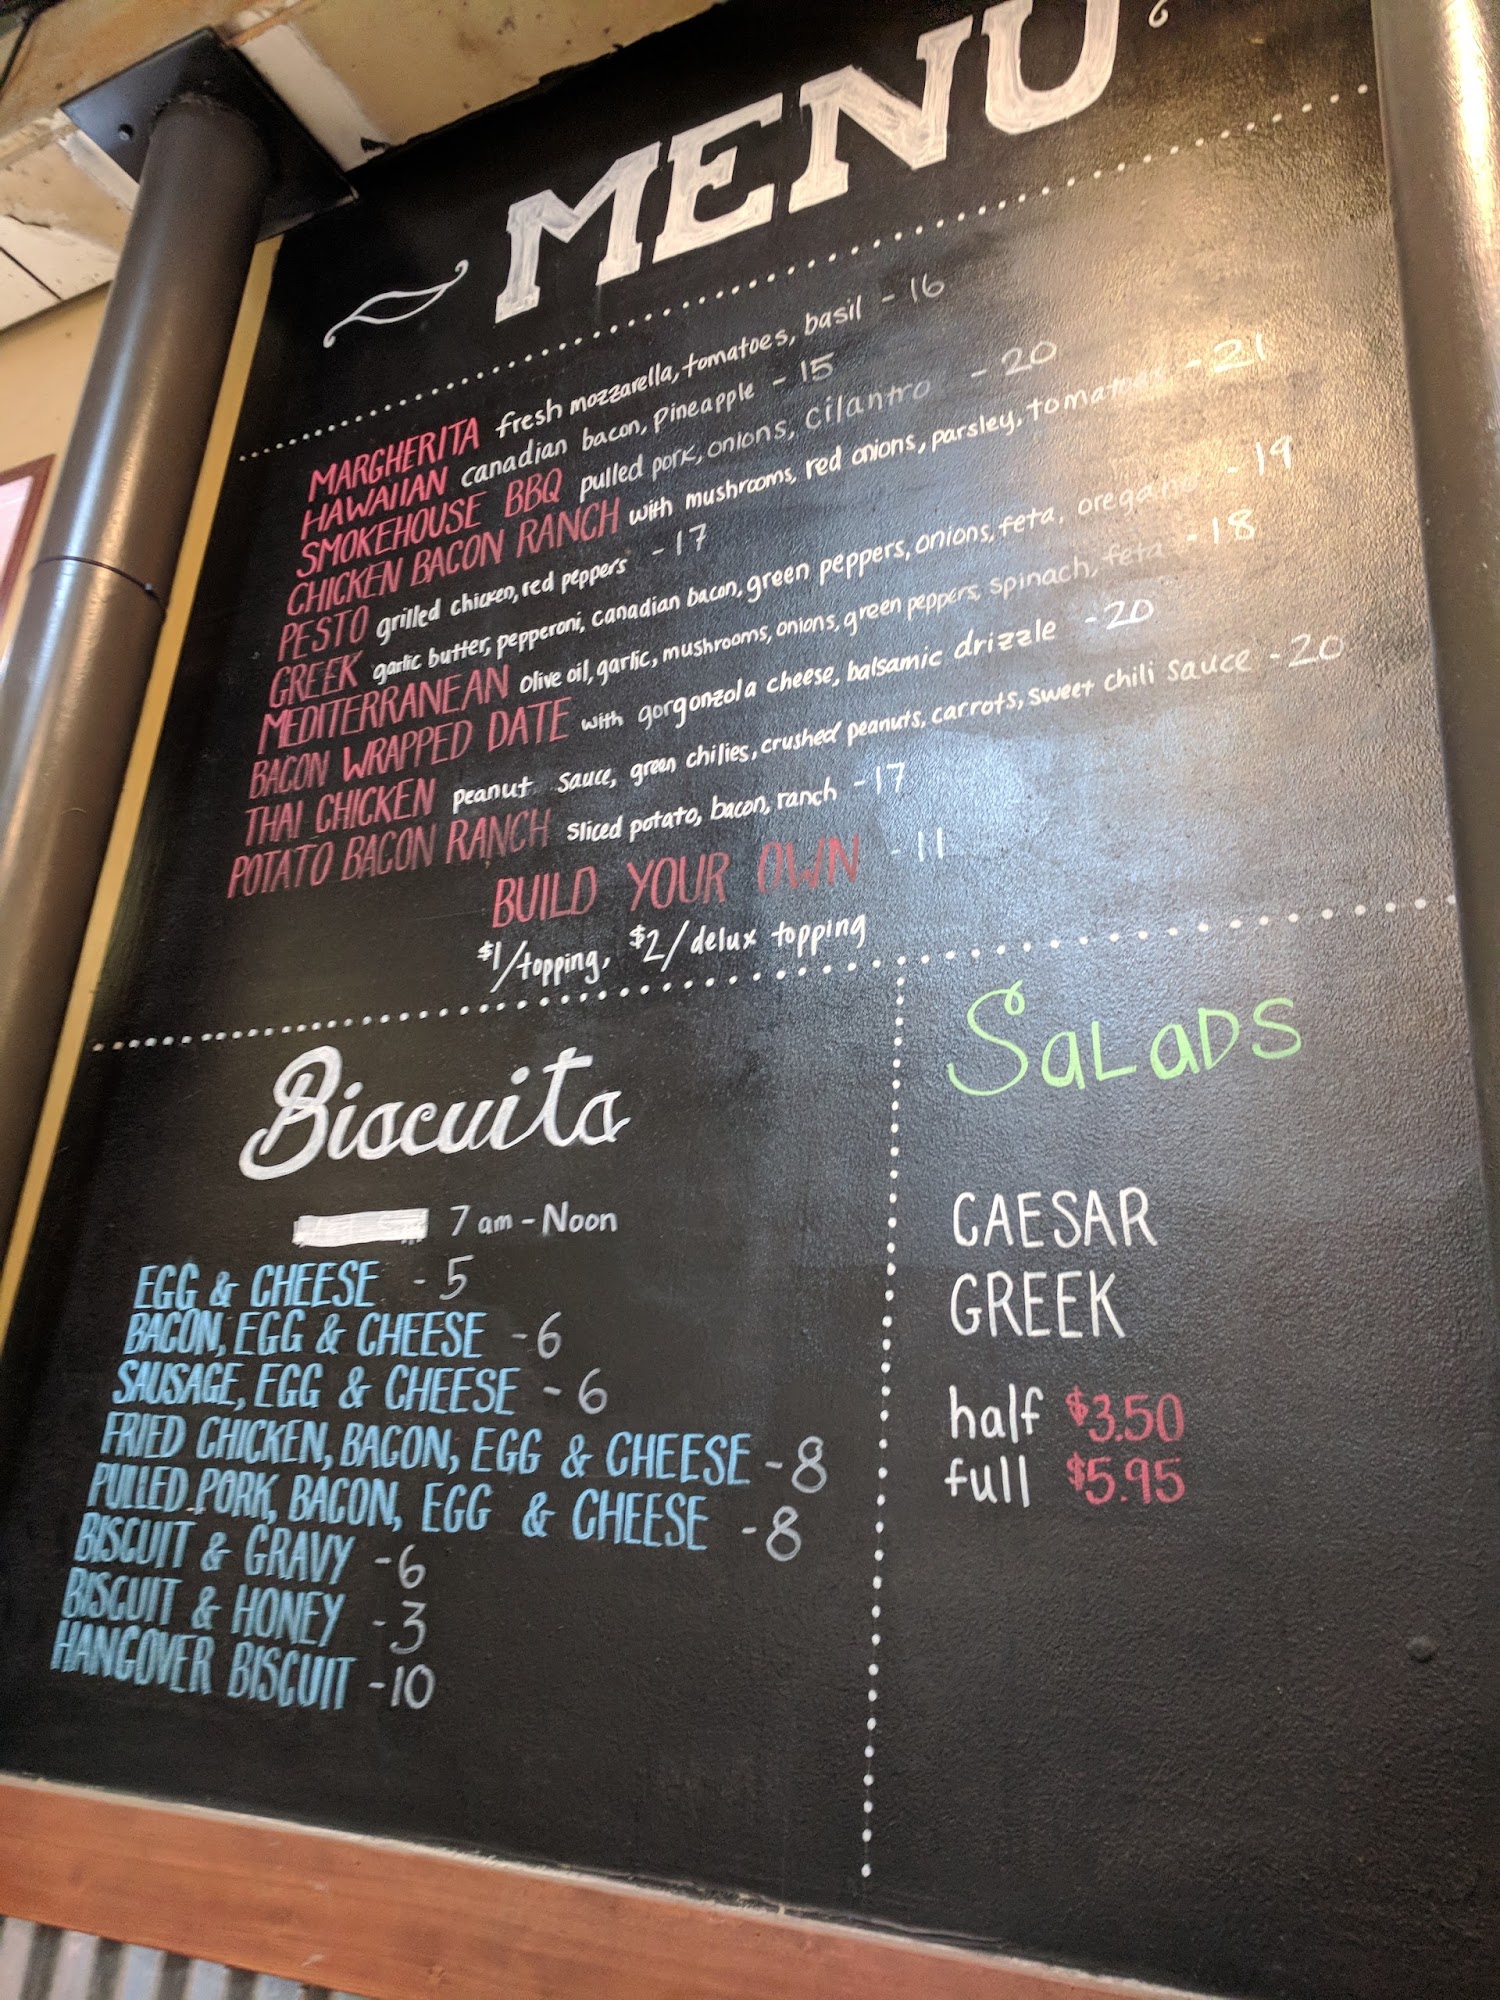 MENU
MARGHERITA fresh mozzarella, tomatoes, basil - 16
HAWAIIAN canadian bacon, pineapple - 15
SMOKEHOUSE BBQ pulled pork, onions, cilantro - 20
CHICKEN BACON RANCH with mushrooms, red onions, parsley, tomatoes - 21
PESTO grilled chicken, red peppers - 17
GREEK garlic butter, pepperoni, canadian bacon, green peppers, onions, feta, oregano - 19
MEDITERRANEAN olive oil, garlic, mushrooms, onions, green peppers, spinach, feta - 18
BACON WRAPPED DATE with gorgonzola cheese, balsamic drizzle - 20
THAI CHICKEN peanut sauce, green chilies, crushed peanuts, carrots, sweet chili sauce - 20
POTATO BACON RANCH sliced potato, bacon, ranch - 17
BUILD YOUR OWN - 11
$1/topping, $2/delux topping
Biscuits
7 am - Noon
EGG & CHEESE - 5
BACON, EGG & CHEESE - 6
SAUSAGE, EGG & CHEESE - 6
FRIED CHICKEN, BACON, EGG & CHEESE - 8
PULLED PORK, BACON, EGG & CHEESE - 8
BISCUIT & GRAVY - 6
BISCUIT & HONEY - 3
HANGOVER BISCUIT - 10
SALADS
CAESAR
GREEK
half $3.50
full $5.95